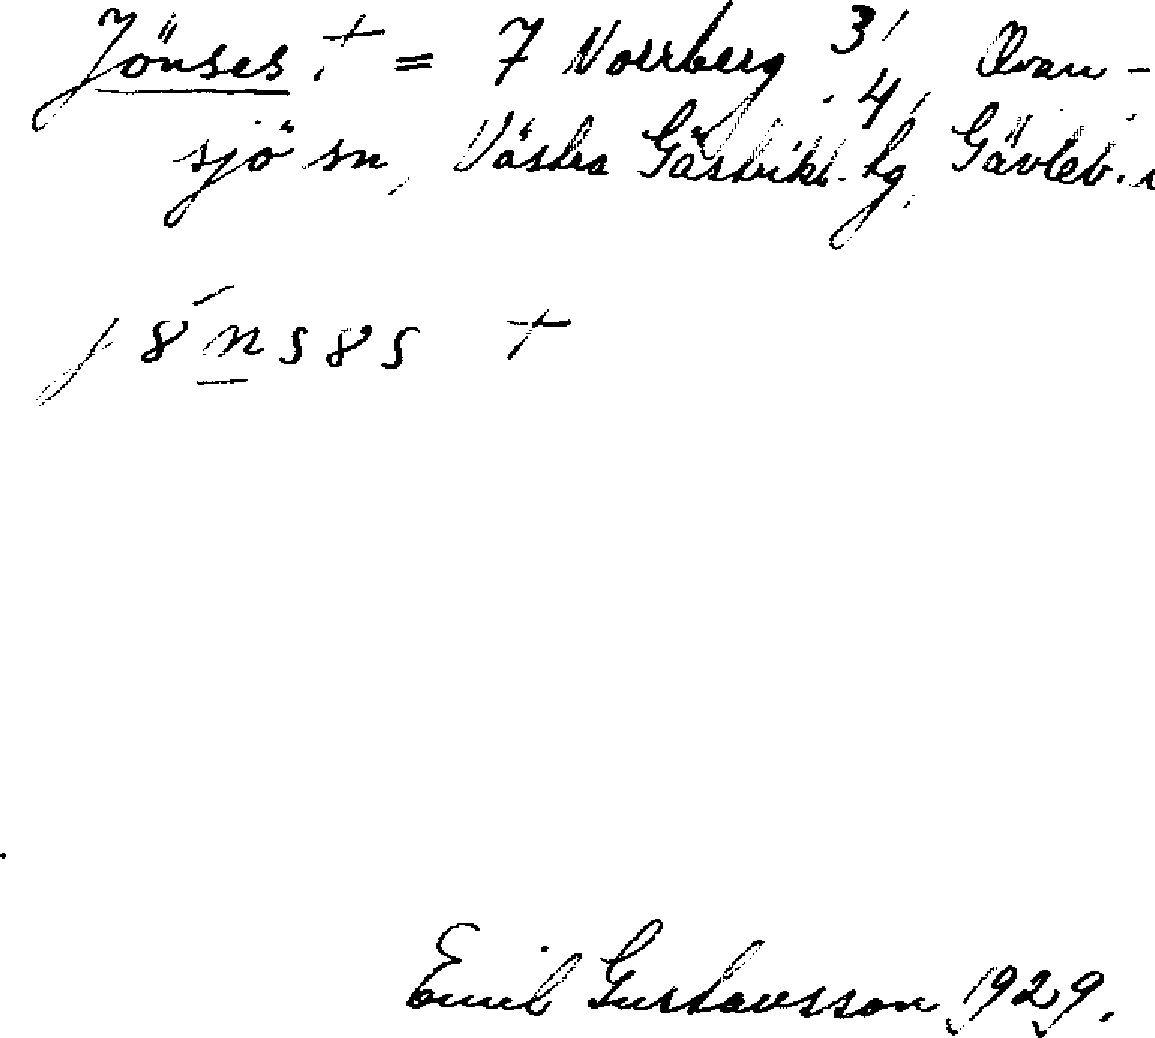 Jönses + = 7 Norrberg 3/4, Ovan-
sjö sn, Västra Gästrikl. hg, Gävleb.
j8́n̲s8s +
Emil Gustavsson 1929.